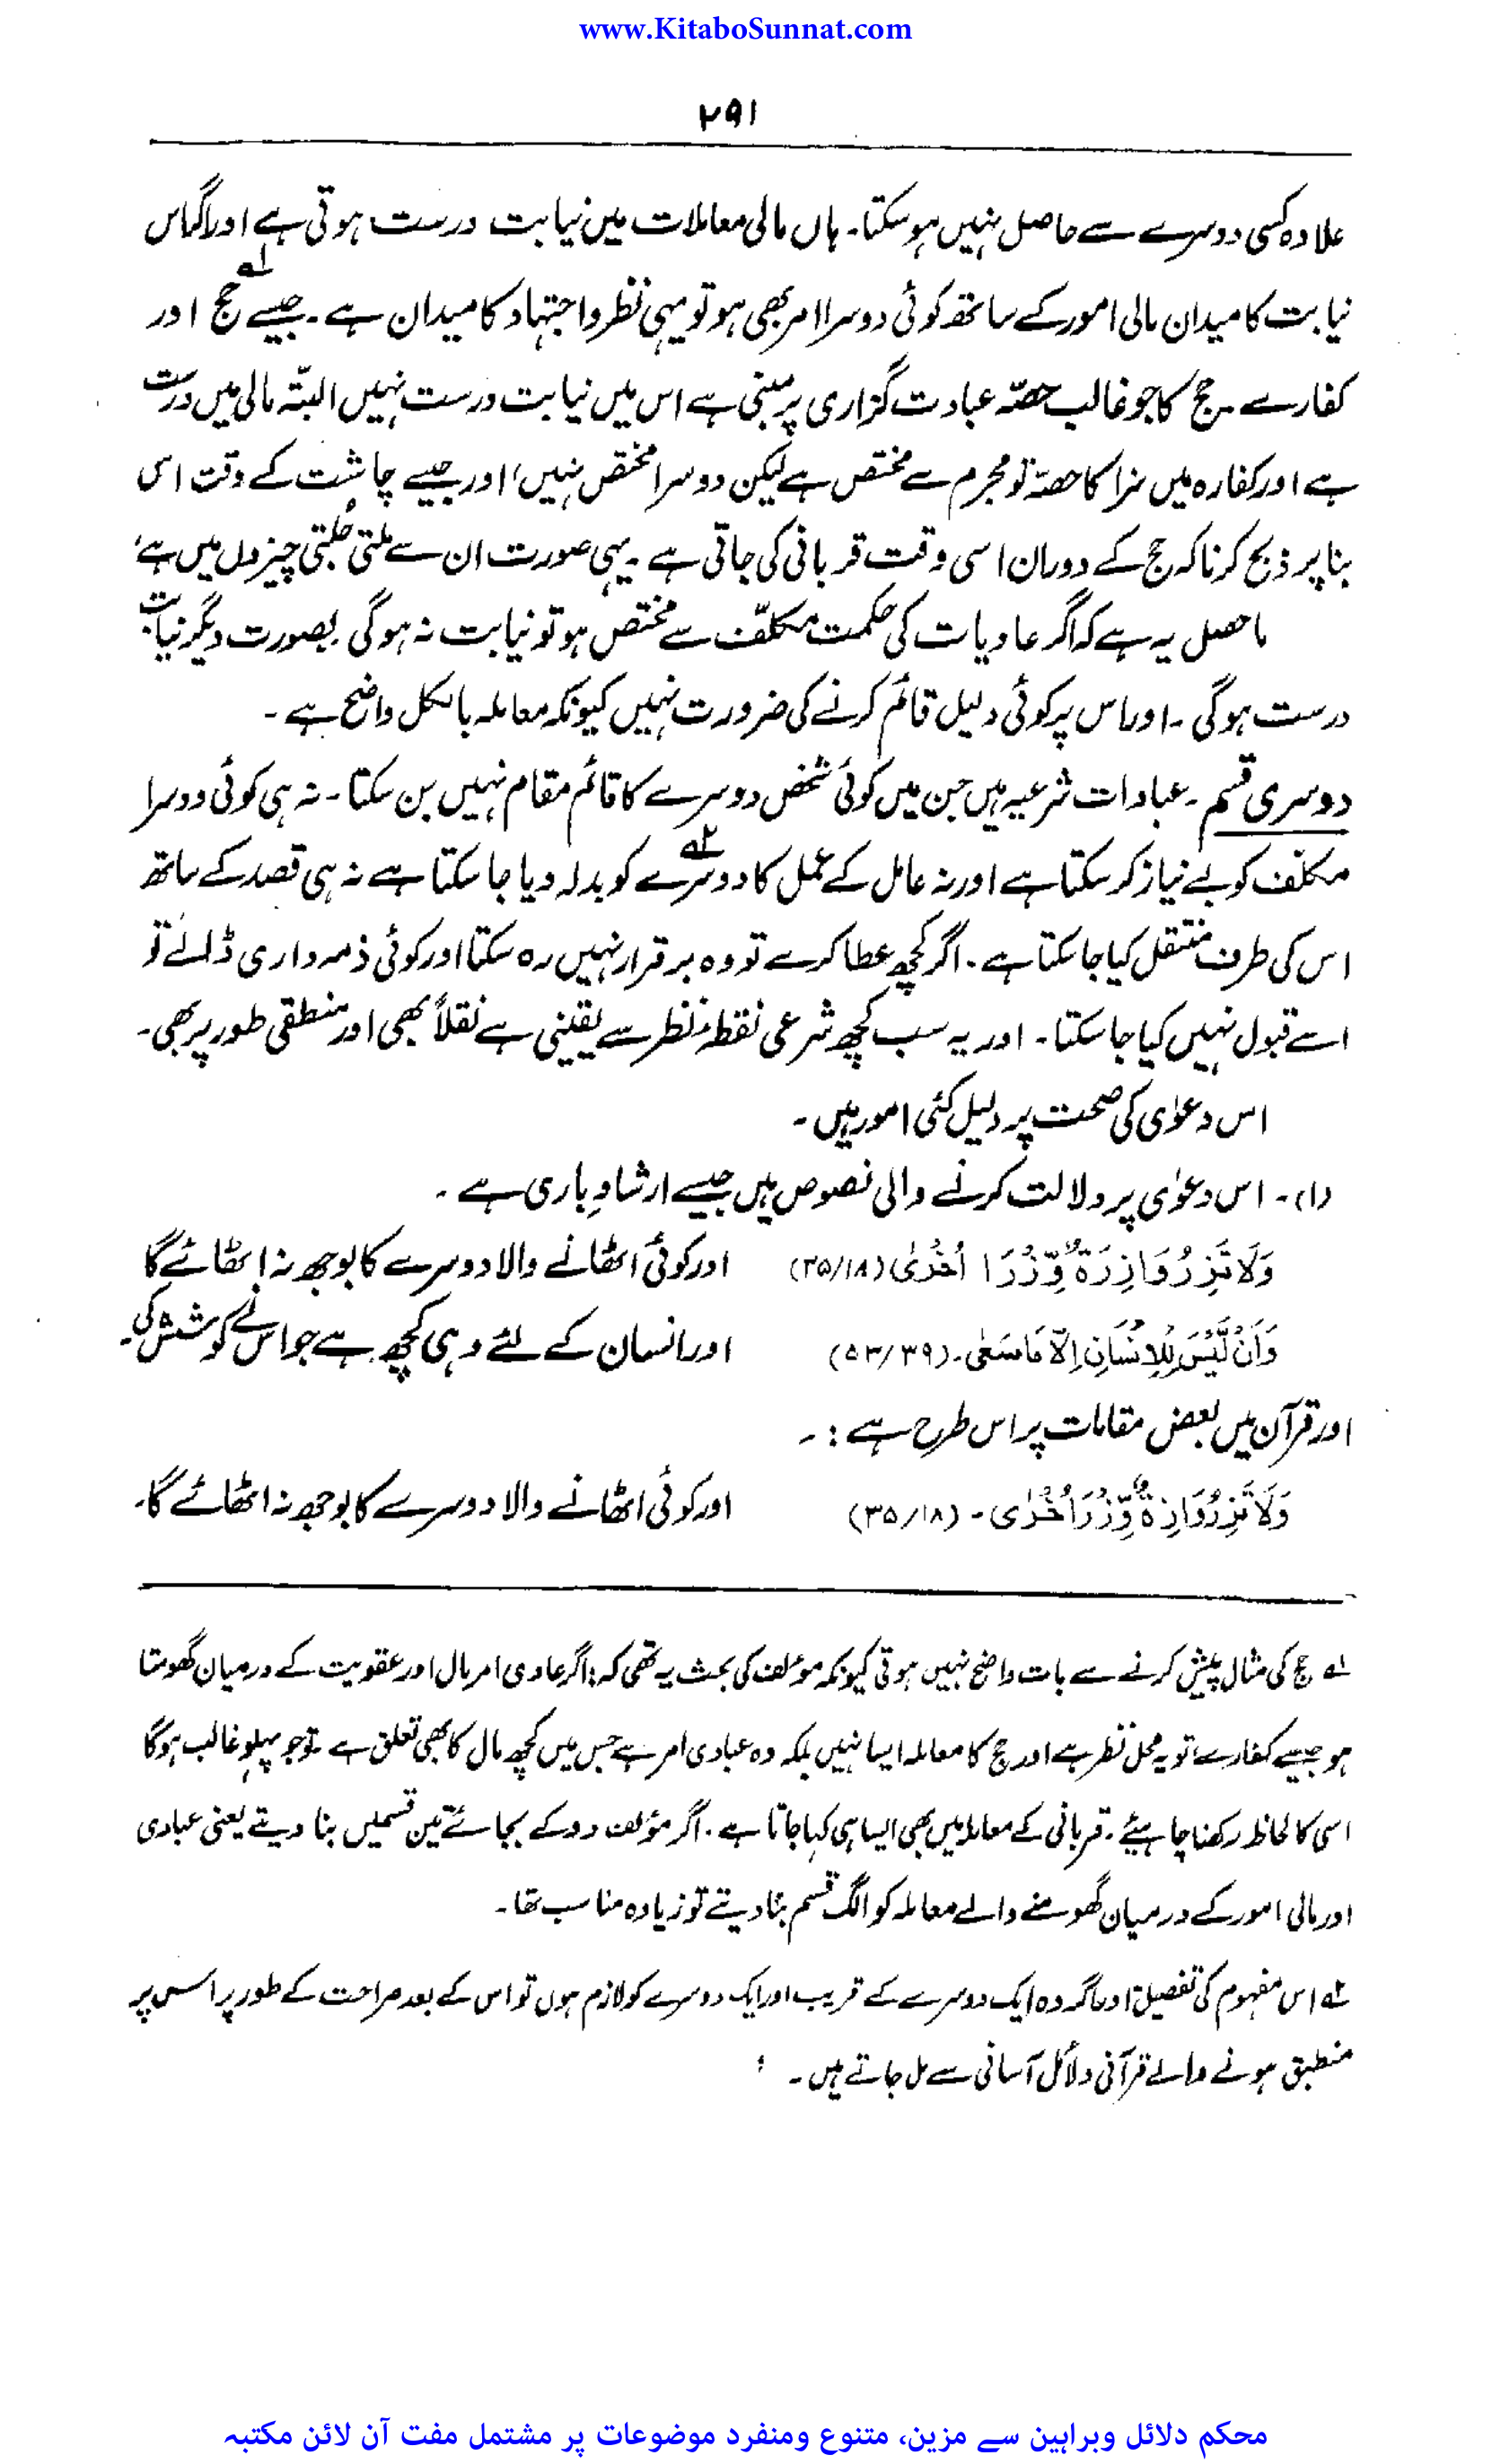 www.KitaboSunnat.com
۲۹۱
علاوہ کسی دوسرے سے حاصل نہیں ہو سکتا۔ ہاں مالی معاملات میں نیابت درست ہوتی ہے اور اگر اس
نیابت کا میدان مالی امور کے ساتھ کوئی دوسرا امر بھی ہو تو یہی نظر و اجتہاد کا میدان ہے۔ جیسے حج ۱ اور
کفارے۔ حج کا جو غالب حصّہ عبادت گزاری پر مبنی ہے اس میں نیابت درست نہیں البتّہ مالی میں درست
ہے اور کفارہ میں سزا کا حصّہ تو مجرم سے مختص ہے لیکن دوسرا مختص نہیں، اور جیسے چاشت کے وقت اسی
بنا پر ذبح کرنا کہ حج کے دوران اسی وقت قربانی کی جاتی ہے۔ یہی صورت ان سے ملتی جُلتی چیزوں میں ہے،
ماحصل یہ ہے کہ اگر عادیات کی حکمت مکلّف سے مختص ہو تو نیابت نہ ہوگی بصورت دیگر نیابت
درست ہوگی۔ اور اس پر کوئی دلیل قائم کرنے کی ضرورت نہیں کیونکہ معاملہ بالکل واضح ہے۔
دوسری قسم۔ عبادات شرعیہ ہیں جن میں کوئی شخص دوسرے کا قائم مقام نہیں بن سکتا۔ نہ ہی کوئی دوسرا
مکلّف کو بے نیاز کر سکتا ہے اور نہ عامل کے عمل کا دوسرے ۲ کو بدلہ دیا جا سکتا ہے نہ ہی قصد کے ساتھ
اس کی طرف منتقل کیا جا سکتا ہے۔ اگر کچھ عطا کرے تو وہ برقرار نہیں رہ سکتا اور کوئی ذمہ داری ڈالے تو
اسے قبول نہیں کیا جا سکتا۔ اور یہ سب کچھ شرعی نقطۂ نظر سے یقینی ہے نقلاً بھی اور منطقی طور پر بھی۔
اس دعوٰی کی صحت پر دلیل کئی امور ہیں۔
(۱)۔ اس دعوٰی پر دلالت کرنے والی نصوص ہیں جیسے ارشادِ باری ہے۔
وَلَا تَزِرُ وَازِرَةٌ وِّزْرَا اُخْرٰى (۳۵/۱۸) اور کوئی اٹھانے والا دوسرے کا بوجھ نہ اٹھائے گا
وَاَنْ لَّيْسَ لِلْاِنْسَانِ اِلَّا مَا سَعٰى۔ (۵۳/۳۹) اور انسان کے لئے وہی کچھ ہے جو اس نے کوشش کی۔
اور قرآن میں بعض مقامات پر اس طرح ہے :۔
وَلَا تَزِرُ وَازِرَةٌ وِّزْرَ اُخْرٰى۔ (۳۵/۱۸) اور کوئی اٹھانے والا دوسرے کا بوجھ نہ اٹھائے گا۔
۱ حج کی مثال پیش کرنے سے بات واضح نہیں ہوتی کیونکہ مؤلف کی بحث یہ تھی کہ: اگر عادی امر مال اور عقوبت کے درمیان گھومتا
ہو جیسے کفارے تو یہ محل نظر ہے اور حج کا معاملہ ایسا نہیں بلکہ وہ عبادی امر ہے جس میں کچھ مال کا بھی تعلق ہے۔ تو جو پہلو غالب ہوگا
اسی کا لحاظ رکھنا چاہیئے۔ قربانی کے معاملہ میں بھی ایسا ہی کہا جاتا ہے۔ اگر مؤلف دو کے بجائے تین قسمیں بنا دیتے یعنی عبادی
اور مالی امور کے درمیان گھومنے والے معاملہ کو الگ قسم بنا دیتے تو زیادہ مناسب تھا۔
۲ اس مفہوم کی تفصیل، اور اگر وہ ایک دوسرے کے قریب اور ایک دوسرے کو لازم ہوں تو اس کے بعد صراحت کے طور پر اس پر
منطبق ہونے والے قرآنی دلائل آسانی سے مل جاتے ہیں۔
محکم دلائل وبراہین سے مزین، متنوع ومنفرد موضوعات پر مشتمل مفت آن لائن مکتبہ